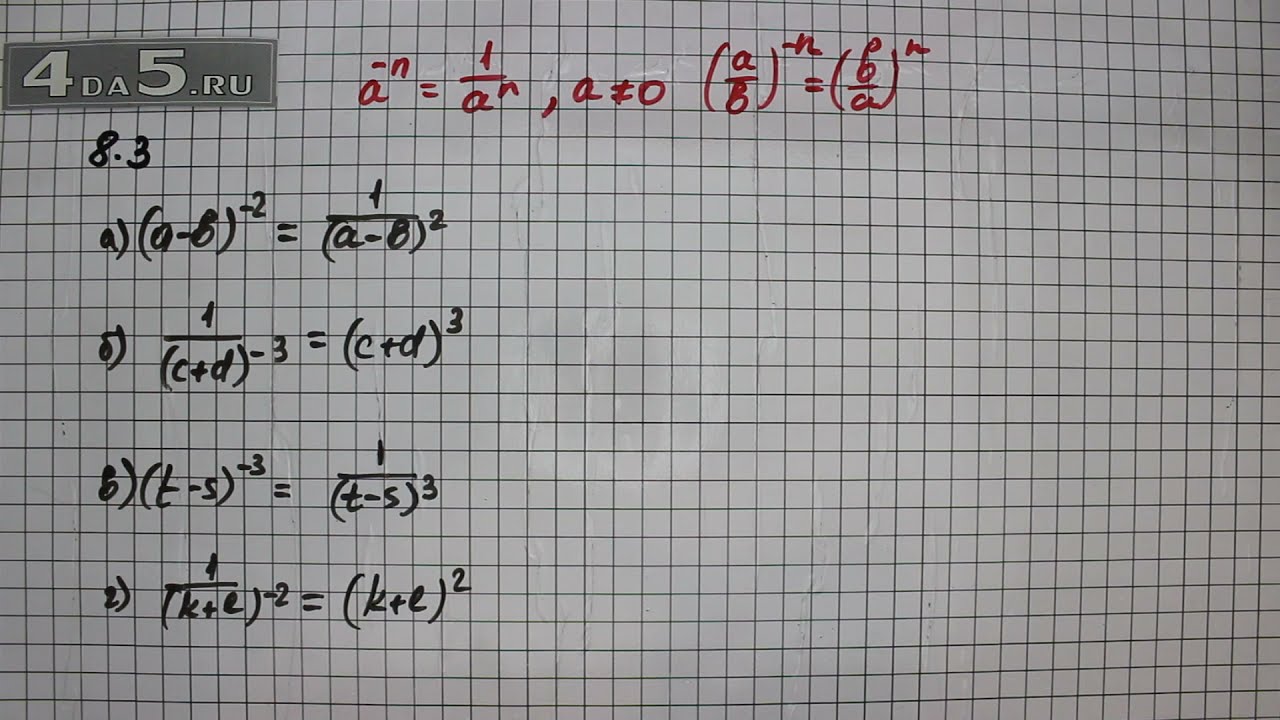 4DA5.RU
a^{-n} = \frac{1}{a^n}, a ≠ 0 (\frac{a}{b})^{-n} = (\frac{b}{a})^n
8.3
а) (a-b)^{-2} = \frac{1}{(a-b)^2}
б) \frac{1}{(c+d)^{-3}} = (c+d)^3
в) (t-s)^{-3} = \frac{1}{(t-s)^3}
г) \frac{1}{(k+l)^{-2}} = (k+l)^2